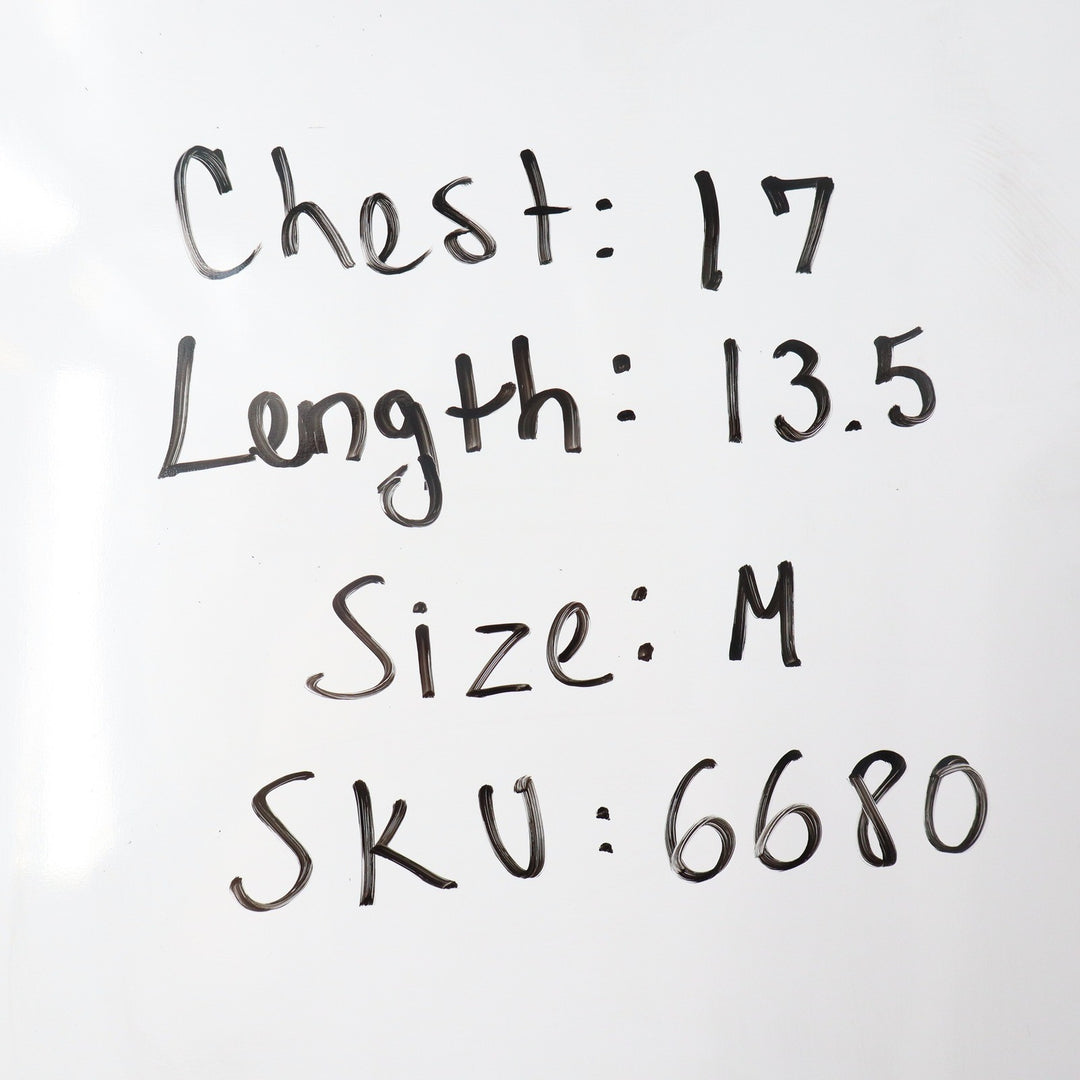 Chest: 17
Length: 13.5
Size: M
SKU: 6680